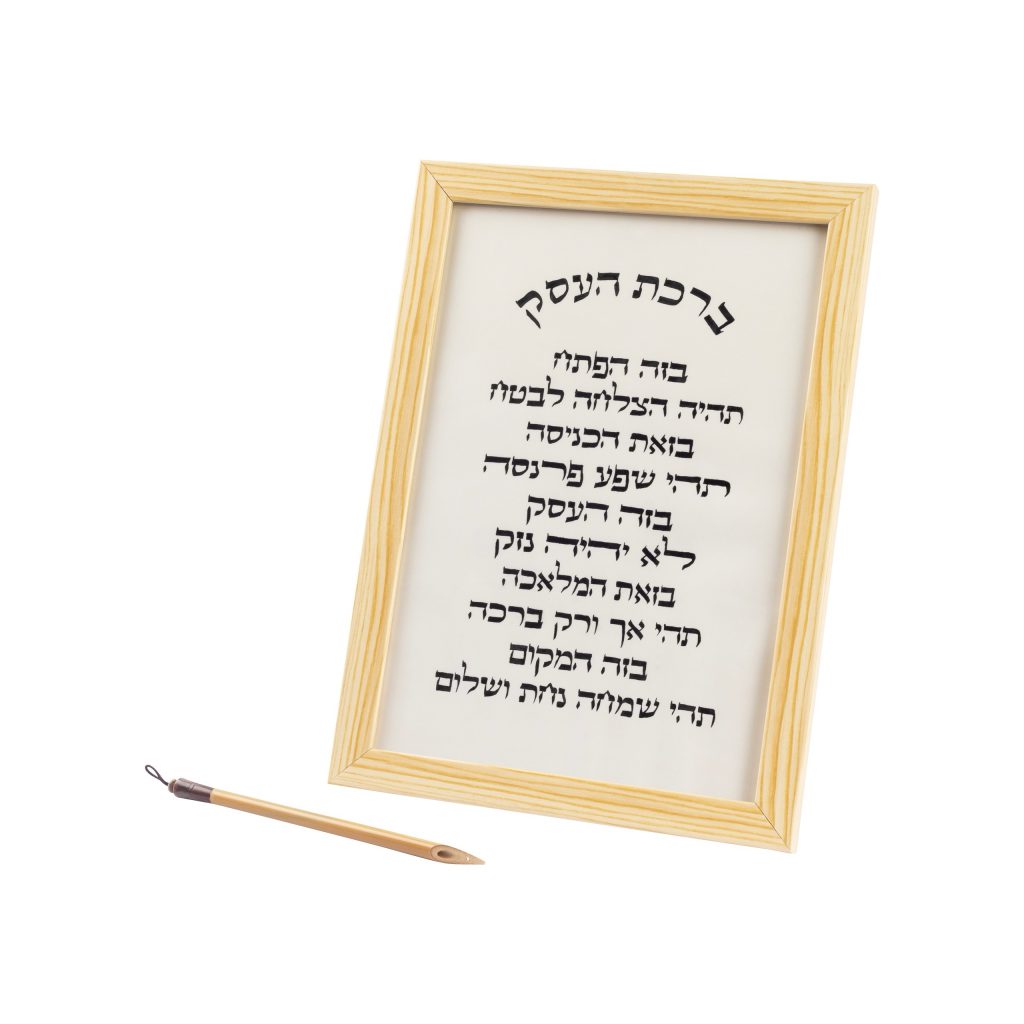 ברכת העסק
בזה הפתח
תהיה הצלחה לבטח
בזאת הכניסה
תהי שפע פרנסה
בזה העסק
לא יהיה נזק
בזאת המלאכה
תהי אך ורק ברכה
בזה המקום
תהי שמחה נחת ושלום